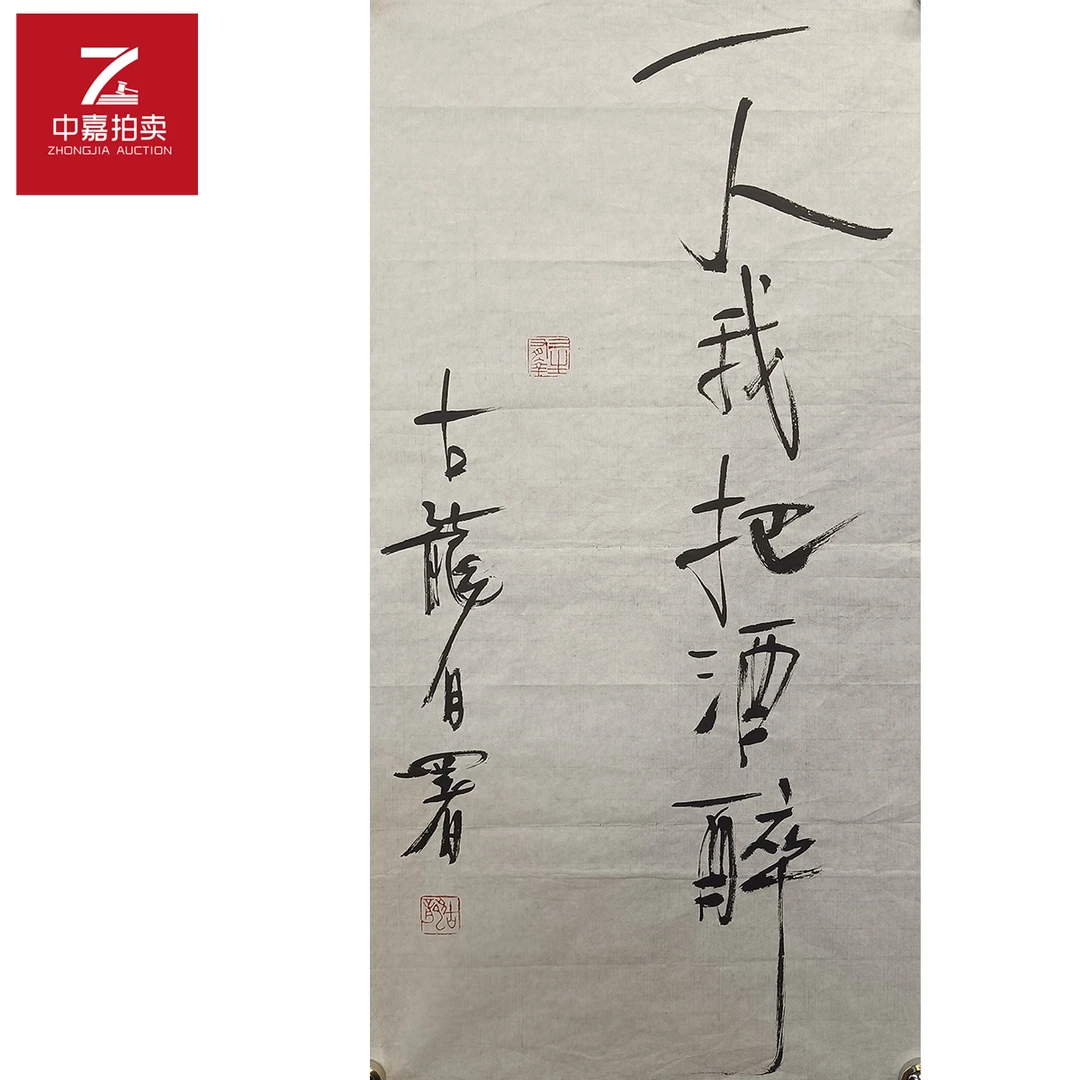 中嘉拍卖
ZHONGJIA AUCTION
一人我把酒醉
古龍自署
古龍